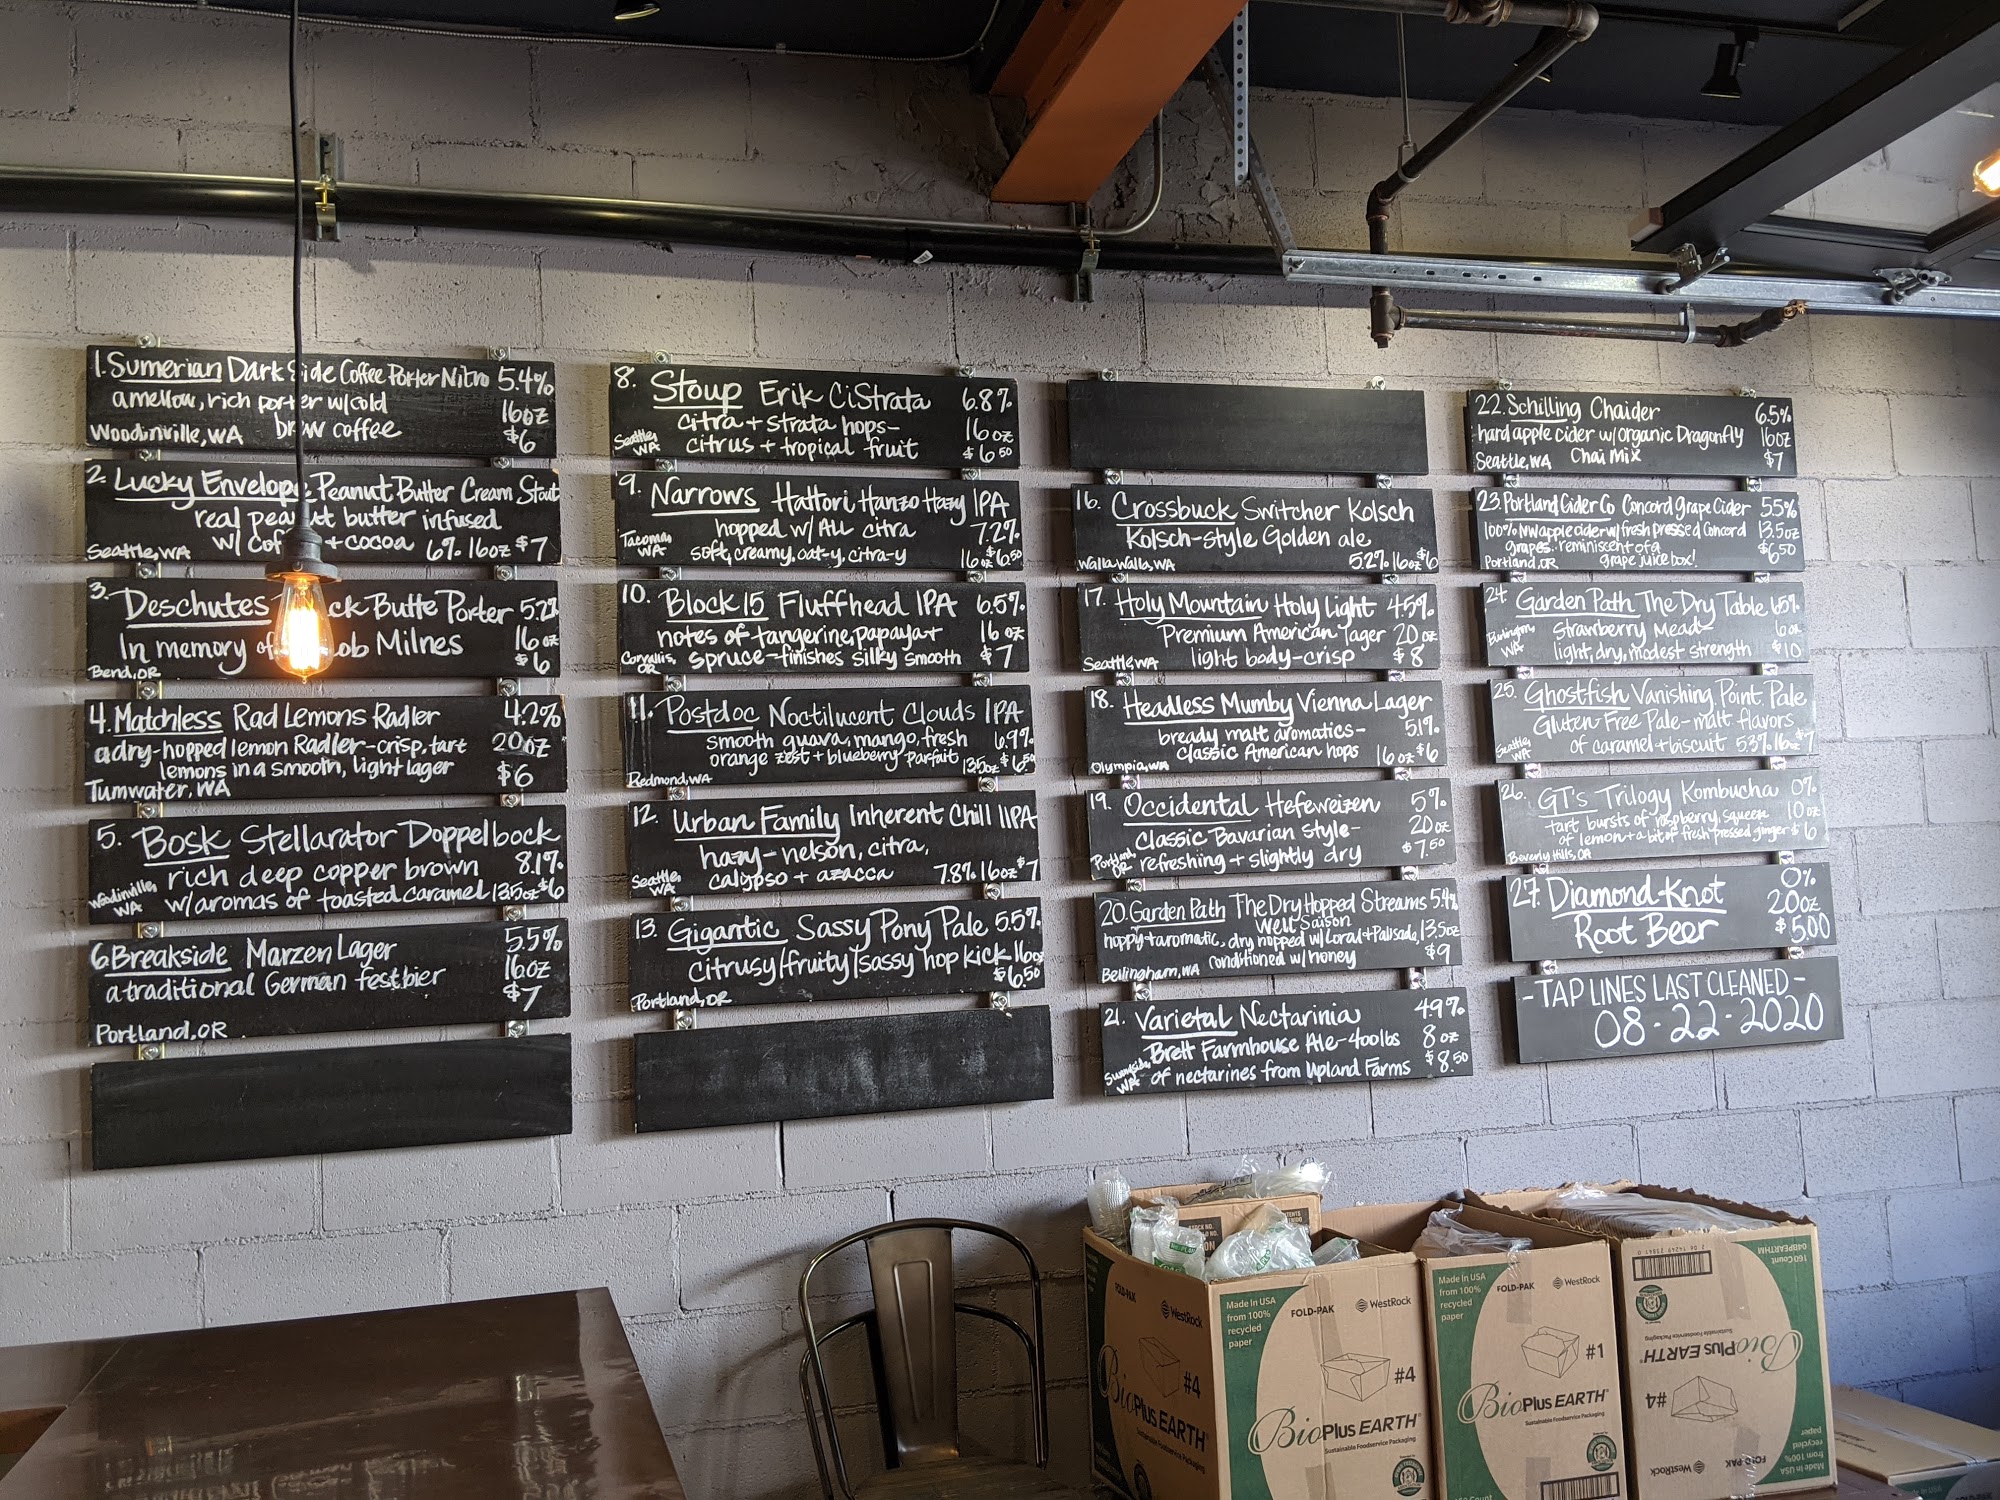 1. Sumerian Dark Side Coffee Porter Nitro 5.4%
a mellow, rich porter w/cold 16oz
Woodinville, WA brew coffee $6
2. Lucky Envelope Peanut Butter Cream Stout
real peanut butter infused
Seattle, WA w/ + cocoa 6% 16oz $7
3. Deschutes Butte Porter 5.2%
In memory of Milnes 16oz
Bend, OR $6
4. Matchless Rad Lemons Radler 4.2%
a dry-hopped lemon Radler-crisp, tart 20oz
lemons in a smooth, light lager $6
Tumwater, WA
5. Bosk Stellarator Doppelbock
rich deep copper brown 8.1%
Woodinville, WA w/aromas of toasted caramel 13.5oz $6
6. Breakside Marzen Lager 5.5%
a traditional German festbier 16oz
$7
Portland, OR
8. Stoup Erik CiStrata 6.8%
citra + strata hops- 16oz
Seattle, WA citrus + tropical fruit $6.50
9. Narrows Hattori Hanzo Hazy IPA
hopped w/ ALL citra 7.2%
Tacoma, WA soft, creamy, oat-y, citra-y 16oz $6.50
10. Block 15 Fluffhead IPA 6.5%
notes of tangerine, papaya + 16oz
Corvallis, OR spruce-finishes silky smooth $7
11. Postdoc Noctilucent Clouds IPA
smooth guava, mango, fresh 6.9%
orange zest + blueberry parfait 13.5oz $6.50
Redmond, WA
12. Urban Family Inherent Chill IIPA
hazy-nelson, citra,
Seattle, WA calypso + azacca 7.8% 16oz $7
13. Gigantic Sassy Pony Pale 5.5%
citrusy/fruity/sassy hop kick 16oz
$6.50
Portland, OR
16. Crossbuck Switcher Kolsch
Kolsch-style Golden ale
Walla Walla, WA 5.2% 16oz $6
17. Holy Mountain Holy Light 4.5%
Premium American lager 20oz
Seattle, WA light body-crisp $8
18. Headless Mumby Vienna Lager
bready malt aromatics- 5.1%
classic American hops 16oz $6
Olympia, WA
19. Occidental Hefeweizen 5%
Classic Bavarian style- 20oz
Portland, OR refreshing + slightly dry $7.50
20. Garden Path The Dry Hopped Streams 5.4%
Well Saison
hoppy + aromatic, dry hopped w/Loral + Palisade, 13.5oz
conditioned w/honey $9
Bellingham, WA
21. Varietal Nectarinia 4.9%
Brett Farmhouse Ale-400lbs 8oz
Sunnyside, WA of nectarines from Upland Farms $8.50
22. Schilling Chaider 6.5%
hard apple cider w/organic Dragonfly 16oz
Seattle, WA Chai Mix $7
23. Portland Cider Co Concord Grape Cider 5.5%
100% NW apple cider w/fresh pressed Concord 13.5oz
grapes. reminiscent of a $6.50
Portland, OR grape juice box!
24. Garden Path The Dry Table 6.5%
Strawberry Mead- 6oz
Burlington, WA light, dry, modest strength $10
25. Ghostfish Vanishing Point Pale
Gluten Free Pale-malt flavors
Seattle, WA of caramel + biscuit 5.3% 16oz $7
26. GT's Trilogy Kombucha 0%
tart bursts of raspberry, squeeze 10oz
of lemon + a bit of fresh pressed ginger $6
Beverly Hills, CA
27. Diamond Knot 0%
Root Beer 20oz
$5.00
-TAP LINES LAST CLEANED-
08-22-2020
FOLD-PAK WestRock
#4
BioPlus EARTH
Made in USA
from 100%
recycled
paper
FOLD-PAK WestRock
#4
BioPlus EARTH
Sustainable Foodservice Packaging
Made in USA
from 100%
recycled
paper
FOLD-PAK WestRock
#1
BioPlus EARTH
Sustainable Foodservice Packaging
04BPEARTHM
160 Count
BioPlus EARTH
Sustainable Foodservice Packaging
#4
FOLD-PAK WestRock
Made in USA
from 100%
recycled
paper